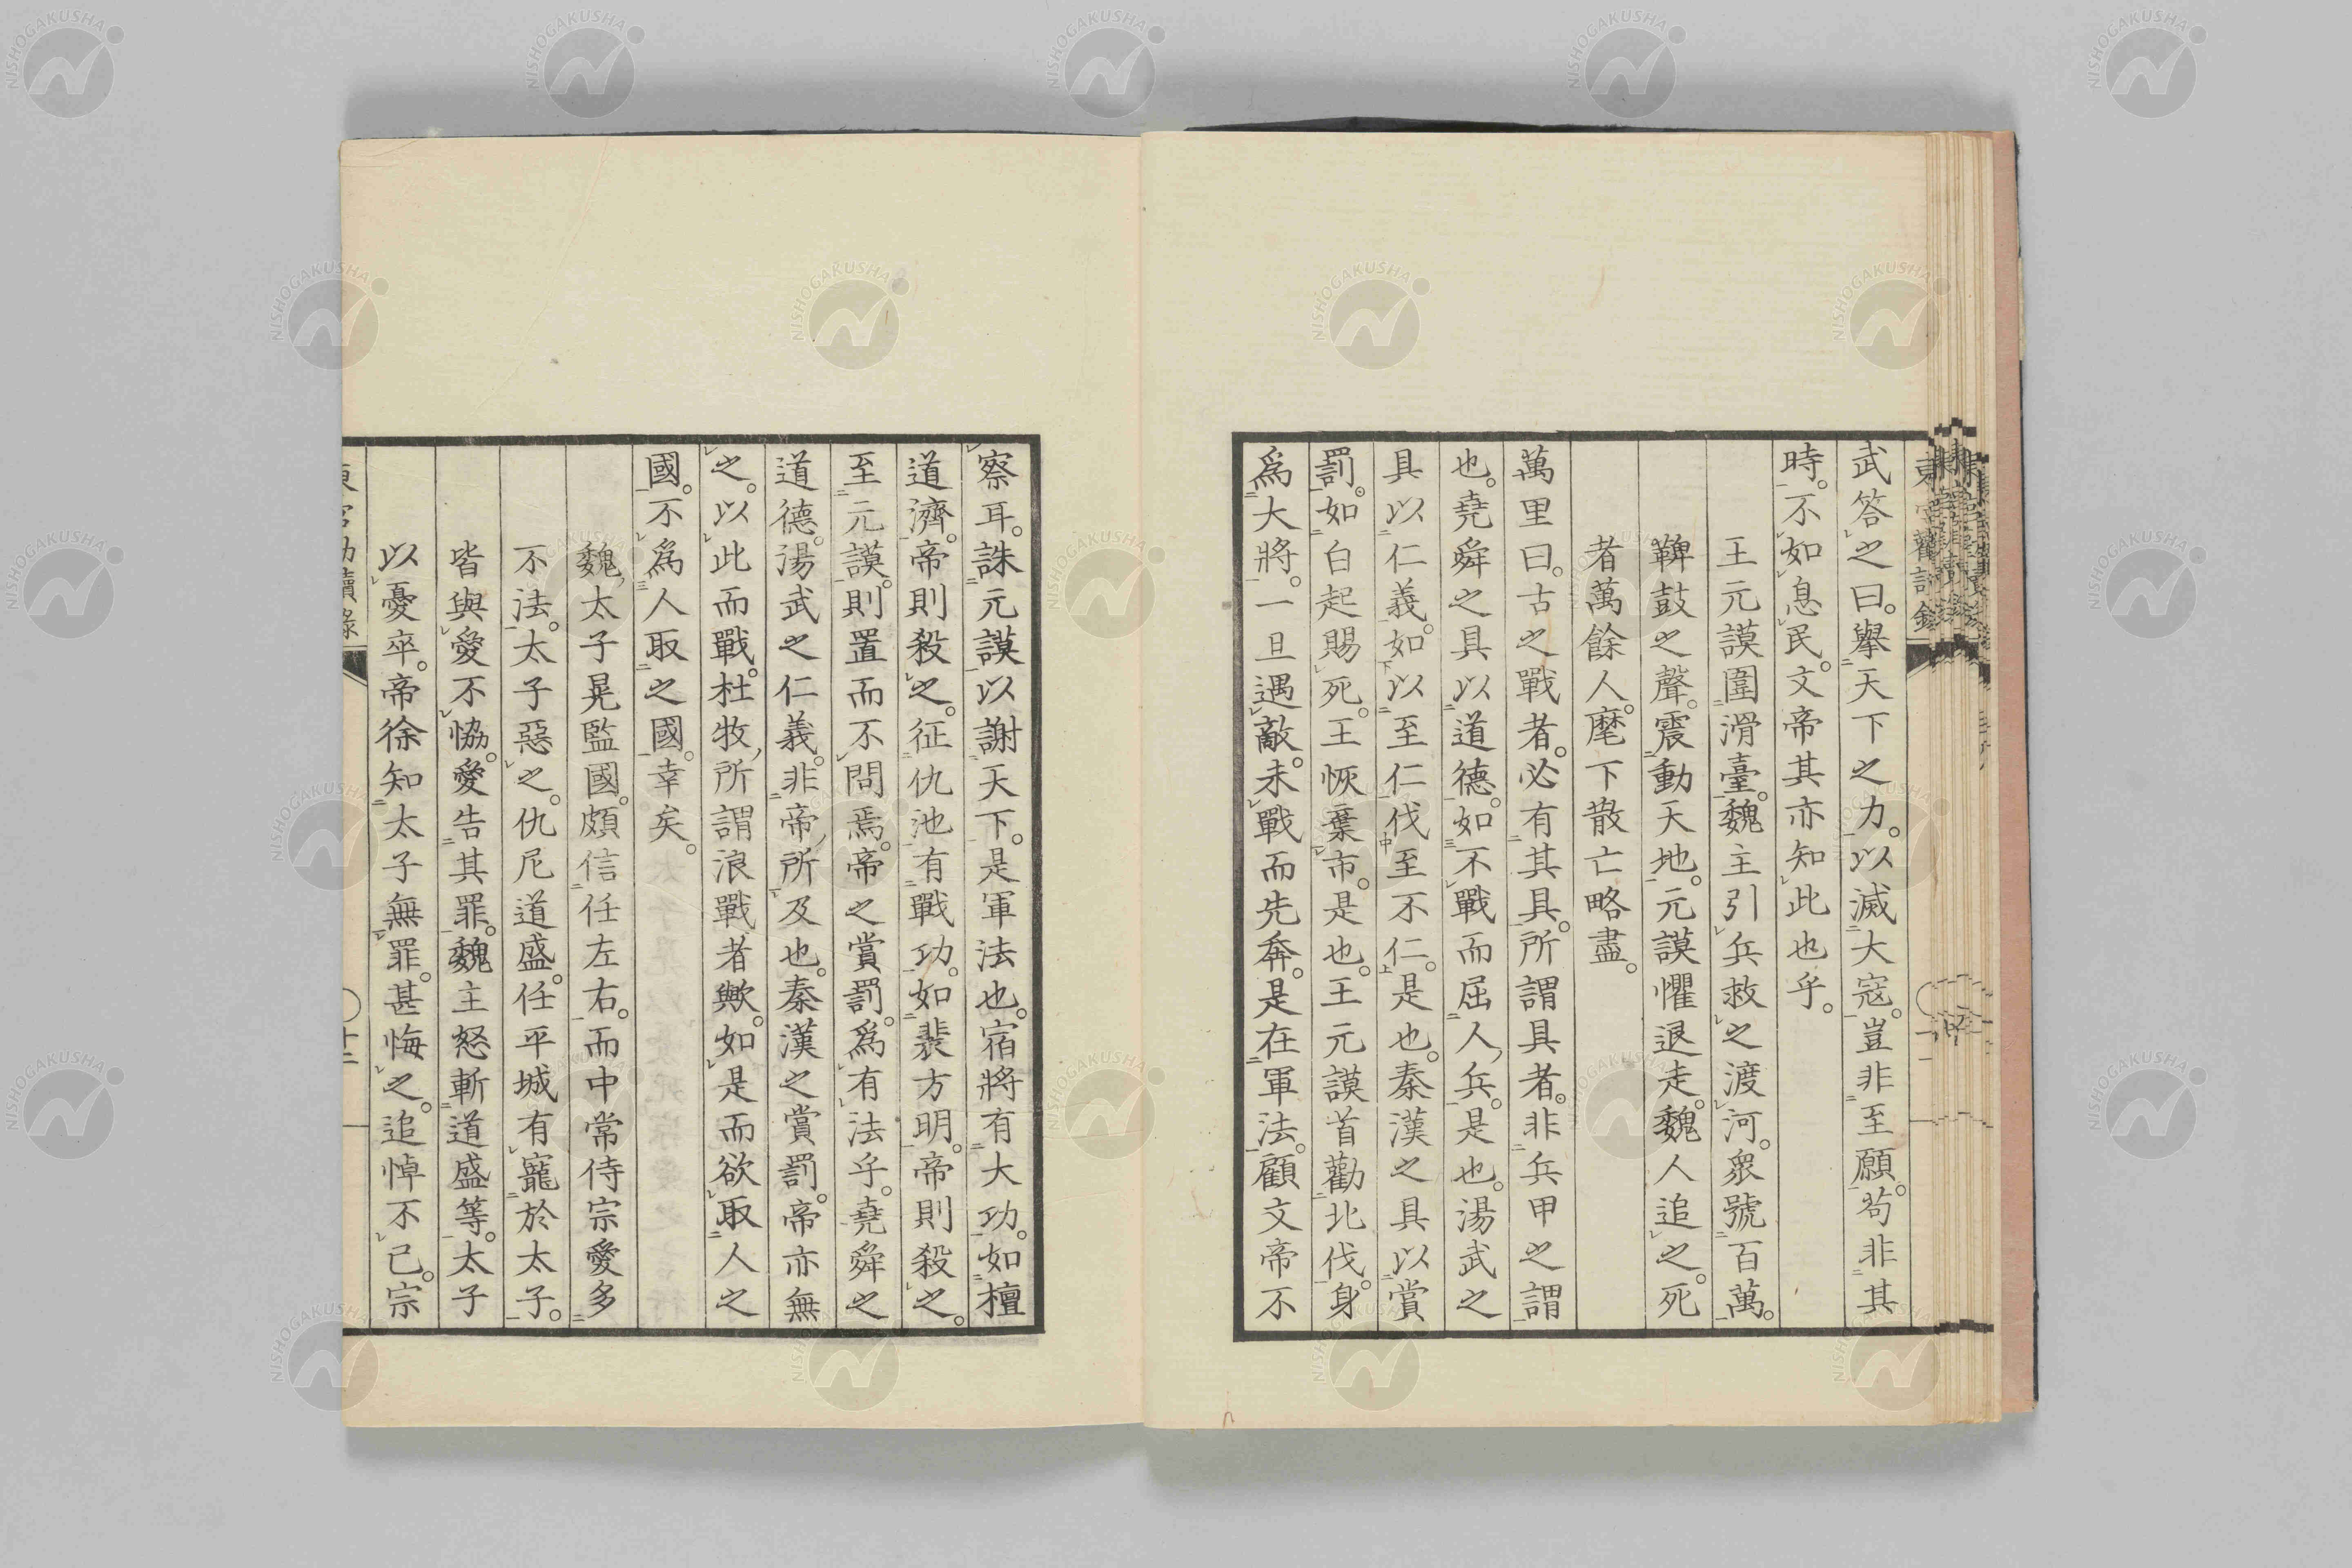 武答之曰。擧天下之力。以滅大寇。豈非至願。苟非其
時。不如息民。文帝其亦知此也乎。
王元謨圍滑臺。魏主引兵救之渡河。衆號百萬。
鞞鼓之聲。震動天地。元謨懼退走。魏人追之。死
者萬餘人。麾下散亡略盡。
萬里曰。古之戰者。必有其具。所謂具者。非兵甲之謂
也。堯舜之具以道德。如不戰而屈人兵。是也。湯武之
具以仁義。如以至仁伐至不仁。是也。秦漢之具以賞
罰。如白起賜死。王恢棄市。是也。王元謨首勸北伐。身
爲大將。一旦遇敵。未戰而先奔。是在軍法。顧文帝不
察耳。誅元謨以謝天下。是軍法也。宿將有大功。如檀
道濟。帝則殺之。征仇池有戰功。如裴方明。帝則殺之。
至元謨。則置而不問焉。帝之賞罰。爲有法乎。堯舜之
道德。湯武之仁義。非帝所及也。秦漢之賞罰。帝亦無
之。以此而戰。杜牧所謂浪戰者歟。如是而欲取人之
國。不爲人取之國。幸矣。
魏太子晃監國。頗信任左右。而中常侍宗愛多
不法。太子惡之。仇尼道盛。任平城有寵於太子。
皆與愛不恊。愛告其罪。魏主怒斬道盛等。太子
以憂卒。帝徐知太子無罪。甚悔之。追悼不已。宗
十二
NISHOGAKUSHA